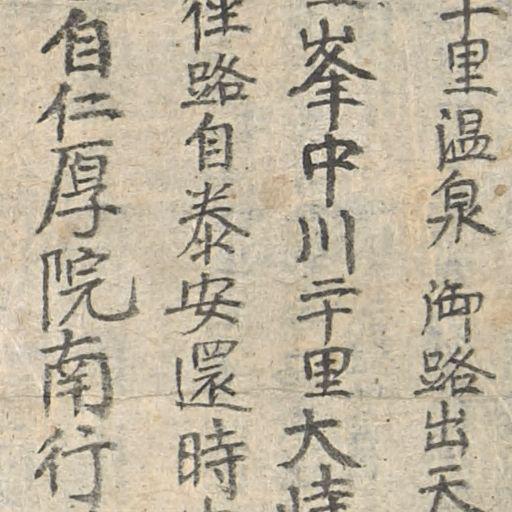 十里温泉 御路出天
峯中川二十里大峙
徑路自泰安還時
自仁厚院南行